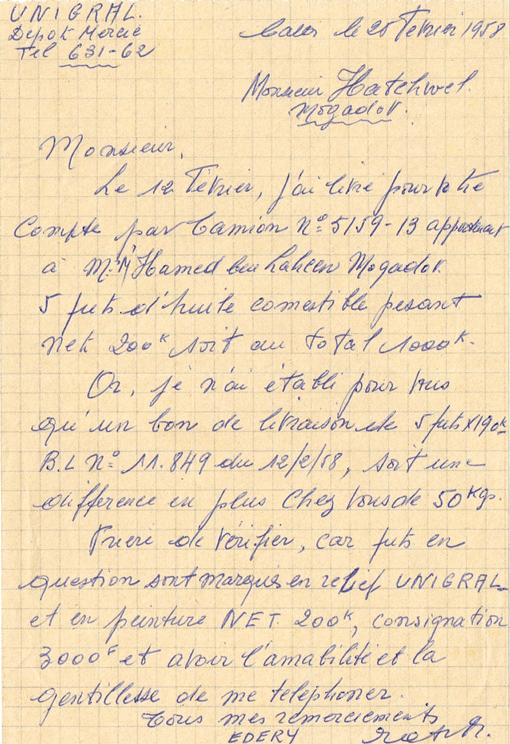 UNIGRAL.
Depot Mercié
Tel 631-62
Casa le 25 Février 1958
Monsieur Hatchwel.
Mogador.
Monsieur,
Le 12 Février, j'ai livré pour votre
Compte par Camion nº 5159-13 appartenant
à M. M'Hamed ben Lahcen Mogador
5 futs d'huile comestible pesant
net 200K soit au total 1000K.
Or, je n'ai établi pour vous
qu'un bon de livraison de 5 futs x 190K
B.L nº 11.849 du 12/2/58, soit une
différence en plus chez vous de 50Kgs.
Prière de vérifier, car futs en
question sont marqués en relief UNIGRAL
et en peinture NET 200K, consignation
3000F et avoir l'amabilité et la
gentillesse de me telephoner.
Tous mes remerciements
EDERY